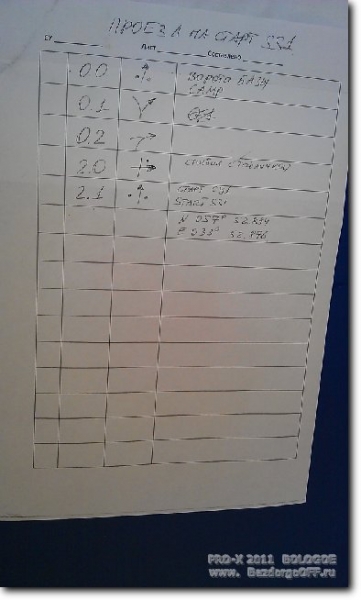 ПРОЕЗД НА СТАРТ SS1
Лист
0.0 ВОРОТА БАЗЫ
CAMP
0.1
0.2
2.0
2.1 СТАРТ СУ1
START SS1
N 057°
E 033°
PRO-X 2011 BOLOGOE
www.BezdorgoOFF.ru